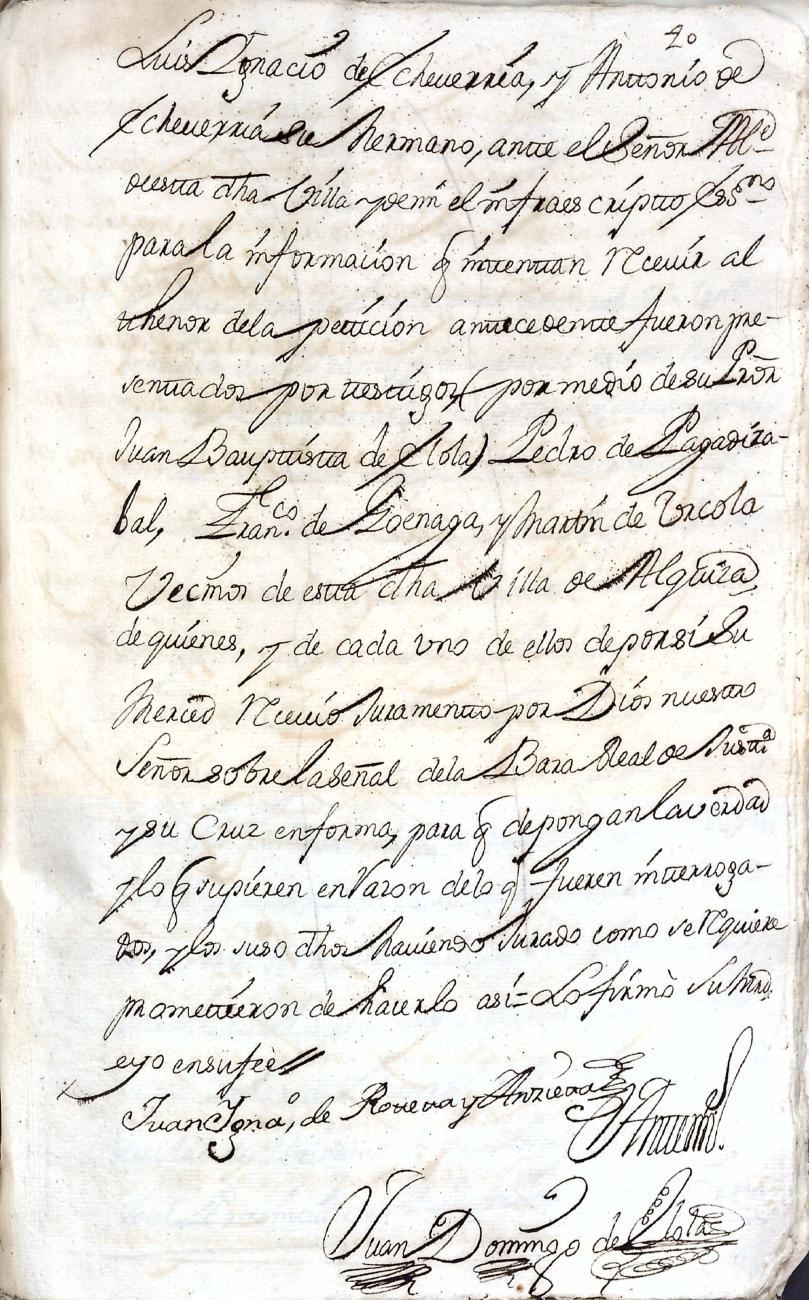 40
Luis Ygnacio de Echeverria, y Antonio de
Echeverria su Hermano, ante el Señor Alld
de esta dha Villa y de mi el infraescripto Essno
para la informacion q intentan Rcevir al
thenor de la peticion antecedente fueron pre-
sentados por testigos, (por medio de su Pror
Juan Bauptista de Elola) Pedro de Pagadiza-
bal, Franco. de Goenaga, y Martin de Urcola
Vecinos de esta dha Villa de Alquiza,
de quienes, y de cada uno de ellos de por si Su
Merced Rcevio Juramento por Dios nuestro
Señor sobre la señal de la Bara Real de Justia
y su Cruz en forma, para q depongan la verdad
y lo q supieren en Razon de lo q fueren interroga-
dos, y los suso dhos Haviendo Jurado como se Rquiere
prometieron de hacerlo asi = Lo firmò Su Mrd.
e yo en su feè //
Juan Ygnao, de Roteta y Anzieta
Antemi.
Juan Domingo de Elola